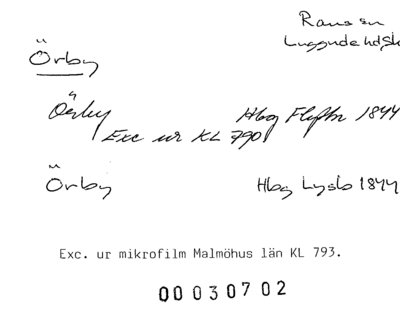 Raus sn
Örby
Luggude hd, Sk
Örby Hbg Flyfkr 1844
Exc ur KL 790
Örby Hbg Lysb 1844
Exc. ur mikrofilm Malmöhus län KL 793.
00 03 07 02